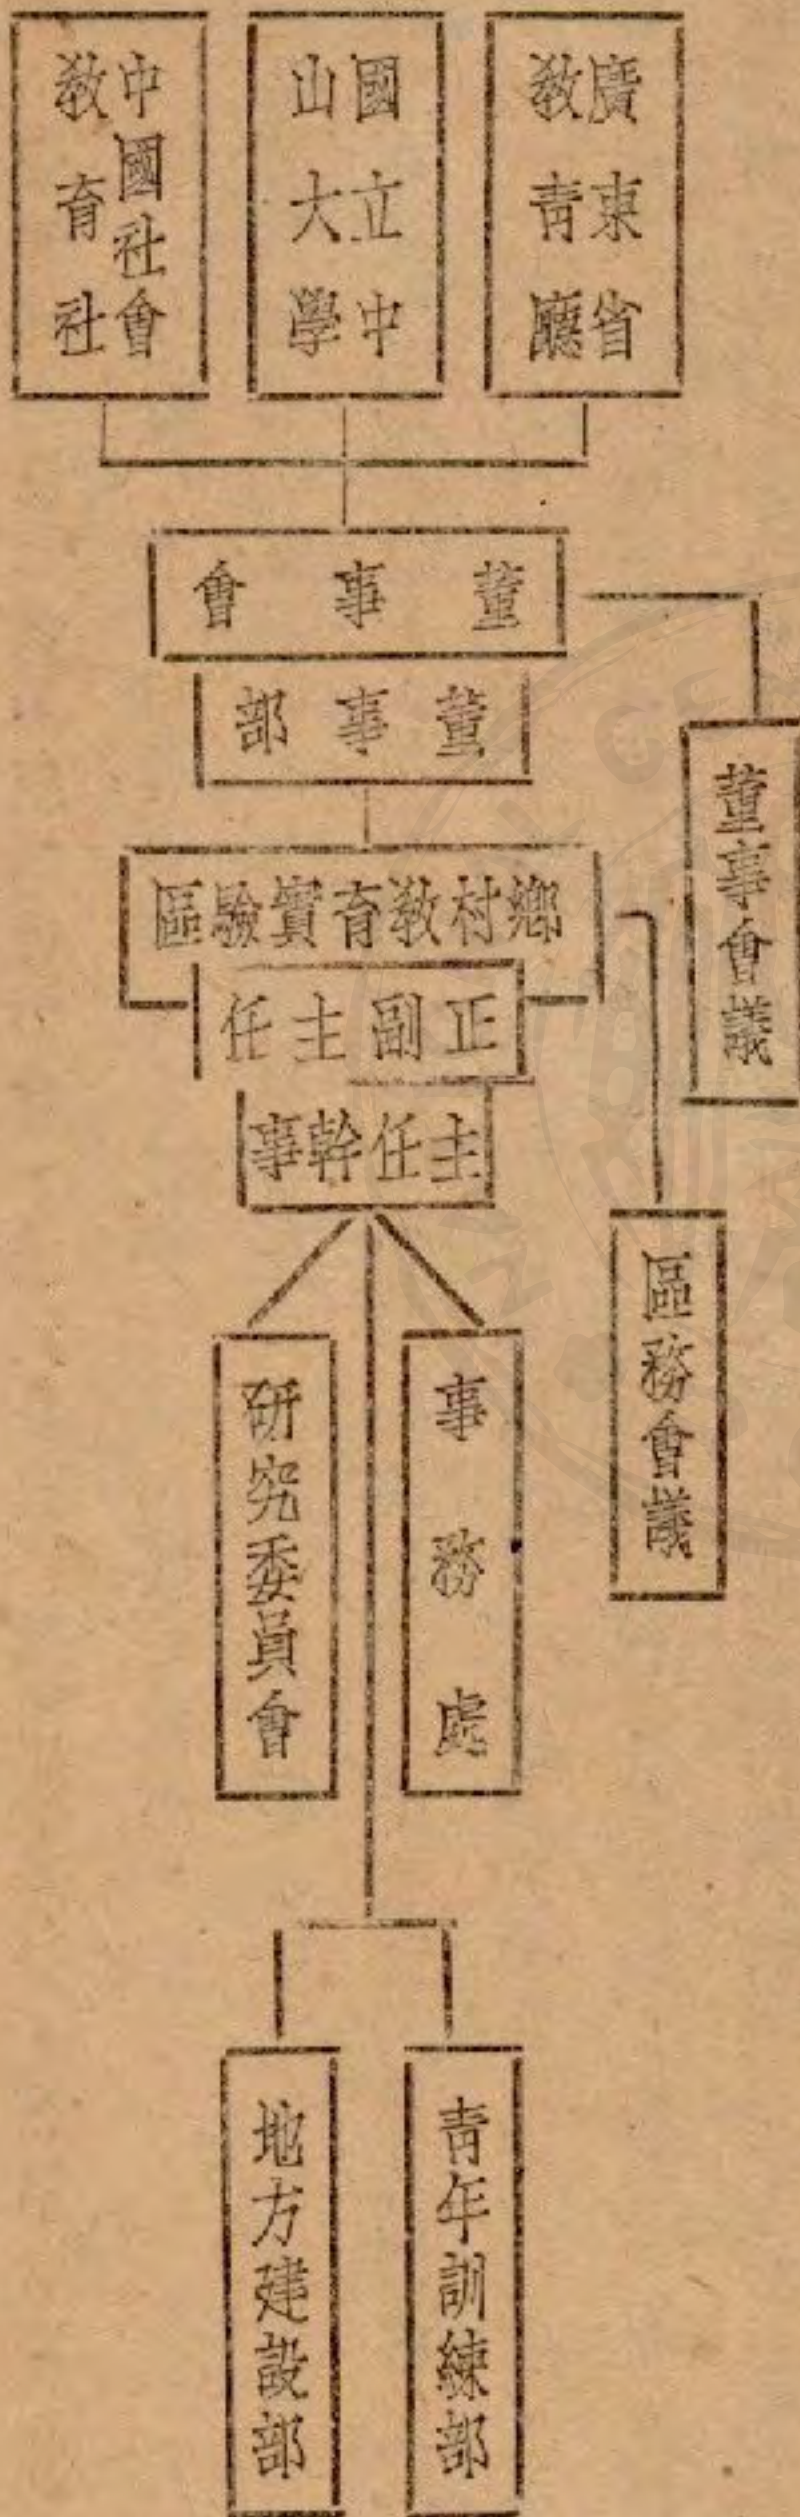 廣東省
教青廳
國立中
山大學
中國社會
教育社
董事會
董事部
董事會議
鄉村教育實驗區
正副主任
主任幹事
區務會議
事務處
研究委員會
青年訓練部
地方建設部